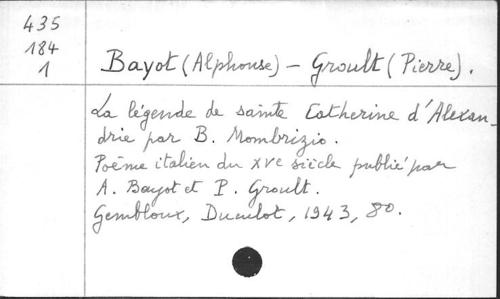 435
184
1
Bayot (Alphonse) - Groult (Pierre).
La légende de sainte Catherine d'Alexan-
drie par B. Mombrizio.
Poème italien du XVe siècle publié par
A. Bayot et P. Groult.
Gembloux, Duculot, 1943, 8o.